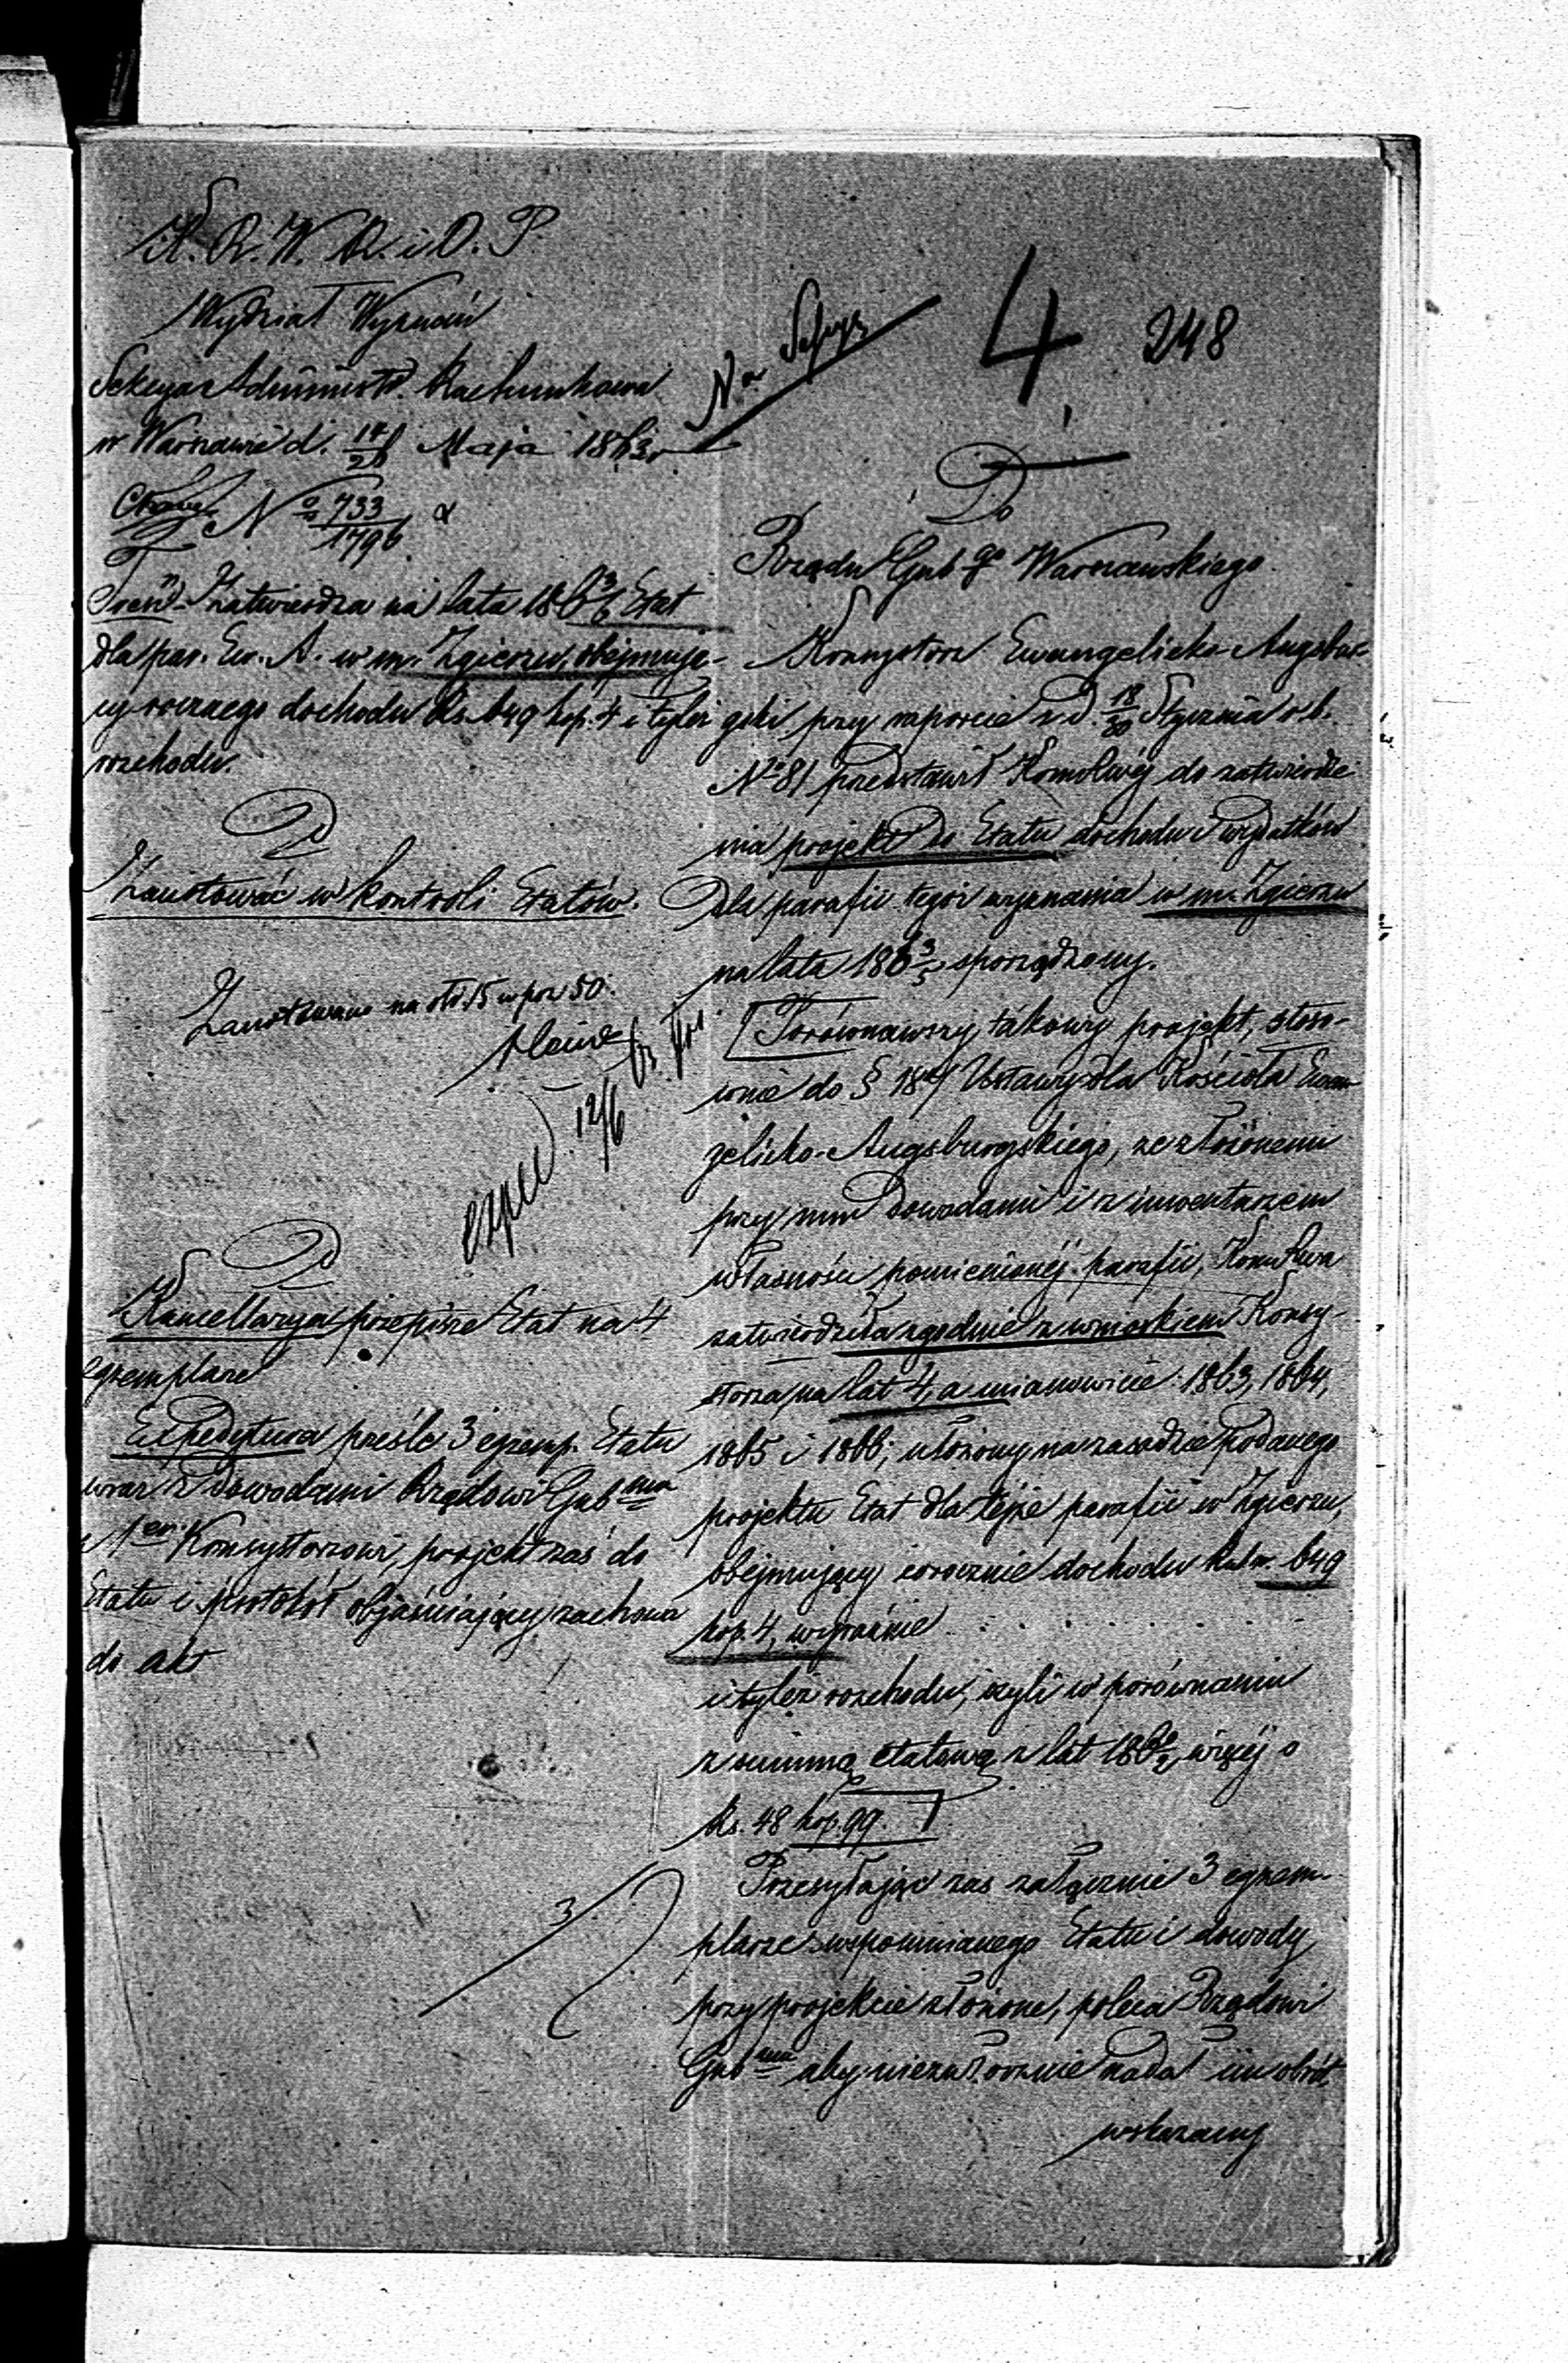 K. R. W. R. i O. P.
Wydział Wyznań
Sekcya Administr. Rachunkowa
w Warszawie d. 14/26 Maja 1863 r.
No 733/1796
4
248
Treść. Zatwierdza na lata 186 3/6 Etat
dla par. Ew. A. w m. Zgierzu, obejmują-
cy rocznego dochodu Rs. 649 kop. 4 i tyleż
rozchodu.
D
Zanotować w kontroli Etatów.
Zanotowano na str. 15 w poz. 50.
exped. 12/6 63
D
Kancellarya przepisze Etat na 4
egzemplarze
Expedytura prześle 3 egzemp. Etatu
wraz z dowodami Rządowi Gubmu
1en Konsystorzowi, projekt zaś do
Etatu i protokół objaśniający zachowa
do akt
3
Do
Rządu Gubgo Warszawskiego
Konsystorz Ewangelicko-Augsbur-
gski przy raporcie z d. 18/30 Stycznia r. b.
No 81 przedstawił Komówéj do zatwierdze
nia projekt do Etatu dochodu i wydatków
dla parafii tegoż wyznania w m. Zgierzu
na lata 186 3/5 sporządzony.
[Porównawszy takowy projekt, stoso-
wnie do § 184 Ustawy dla Kościoła Ewan
gelicko-Augsburgskiego, ze złożonemi
przy nim dowodami i z inwentarzem
własności pomienionéj parafii,
zatwierdziła zgodnie z wnioskiem Konsy-
storza na lat 4, a mianowicie: 1863, 1864,
1865 i 1866; ułożony na zasadzie podanego
projektu Etat dla tejże parafii w Zgierzu,
obejmujący corocznie dochodu Rubsr. 649
kop. 4, wyraźnie . . . . . .
i tyleż rozchodu, czyli w porównaniu
z summą etatową z lat 186 0/2, więcéj o
Rs. 48 kop. 99.]
Przesyłając zaś załącznie 3 egzem-
plarze wspomnianego Etatu i dowody
przy projekcie złożone, poleca Rządowi
Gubmu aby niezwłocznie nadał im obrót
wskazany